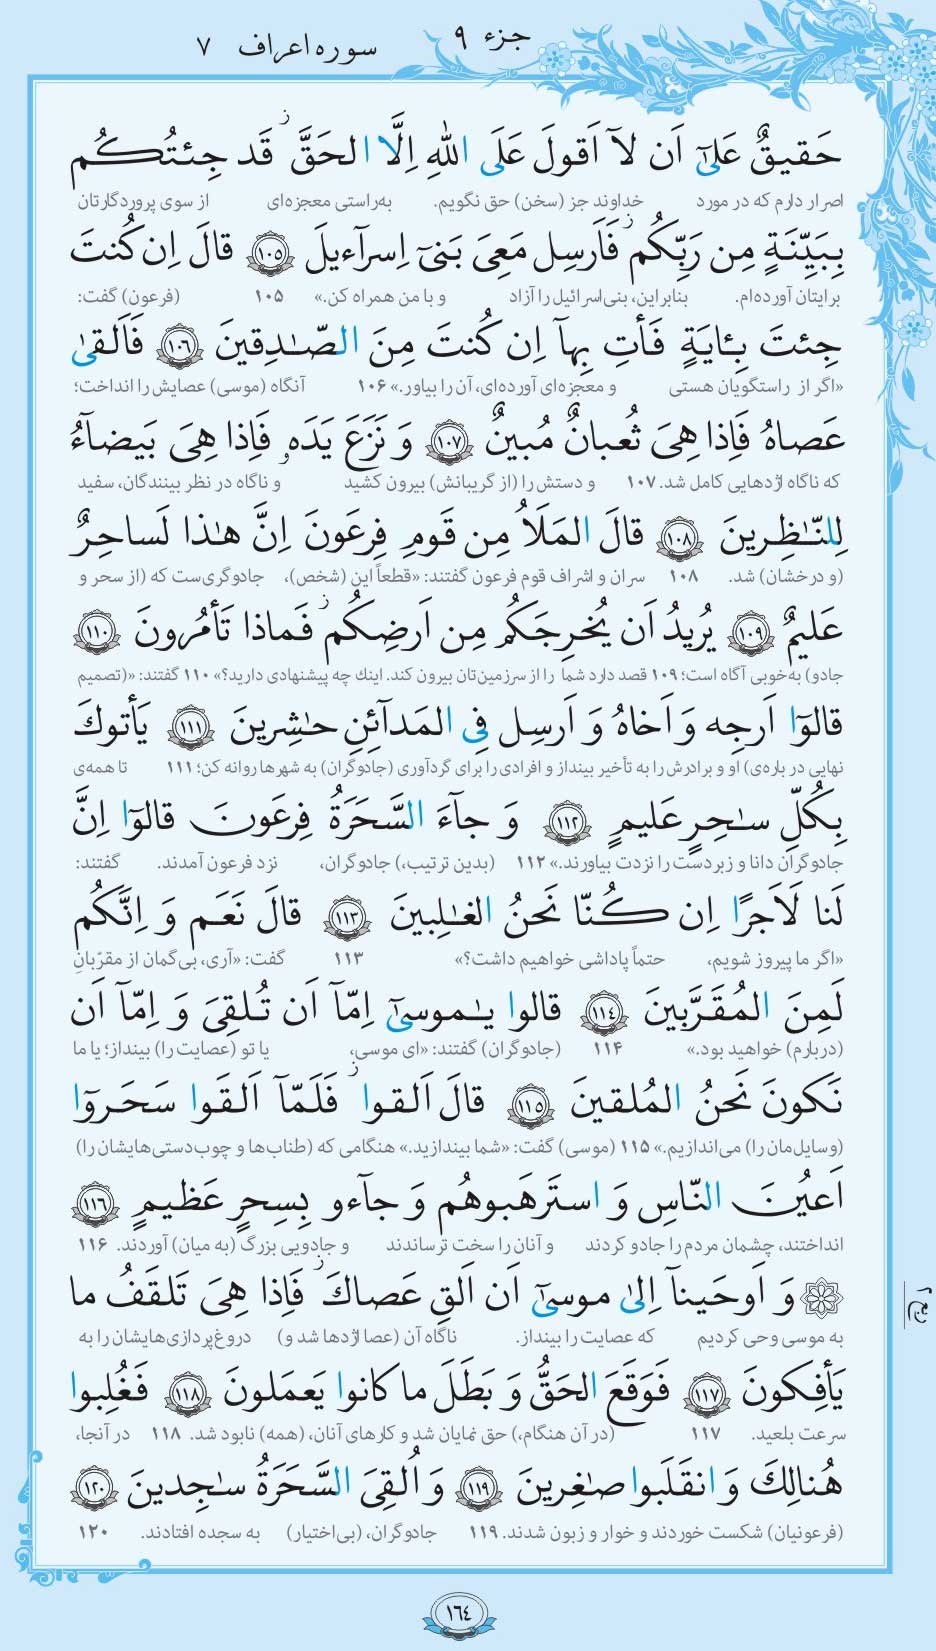 جزء ۹
سوره اعراف ۷
حَقيقٌ عَلىٰٓ اَن لآ اَقولَ عَلَى اللهِ اِلَّا الحَقَّ ۚ قَد جِئتُكُم
اصرار دارم که در مورد خداوند جز (سخن) حق نگویم. به‌راستی معجزه‌ای از سوی پروردگارتان
بِبَيِّنَةٍ مِن رَبِّكُم فَاَرسِل مَعِىَ بَنىٓ اِسرآءيلَ ﴿١٠٥﴾ قالَ اِن كُنتَ
برایتان آورده‌ام. بنابراین، بنی‌اسرائیل را آزاد و با من همراه کن.» ۱۰۵ (فرعون) گفت:
جِئتَ بِـٔايَةٍ فَأتِ بِهآ اِن كُنتَ مِنَ الصّـٰدِقينَ ﴿١٠٦﴾ فَاَلقىٰ
«اگر از راستگویان هستی و معجزه‌ای آورده‌ای، آن را بیاور.» ۱۰۶ آنگاه (موسی) عصایش را انداخت؛
عَصاهُ فَاِذا هِىَ ثُعبانٌ مُبينٌ ﴿١٠٧﴾ وَ نَزَعَ يَدَه‌و فَاِذا هِىَ بَيضآءُ
که ناگاه اژدهایی کامل شد. ۱۰۷ و دستش را (از گریبانش) بیرون کشید و ناگاه در نظر بینندگان، سفید
لِلنّـٰظِرينَ ﴿١٠٨﴾ قالَ المَلَاُ مِن قَومِ فِرعَونَ اِنَّ هـٰذا لَساحِرٌ
(و درخشان) شد. ۱۰۸ سران و اشراف قوم فرعون گفتند: «قطعاً این (شخص)، جادوگری‌ست که (از سحر و
عَليمٌ ﴿١٠٩﴾ يُريدُ اَن يُخرِجَكُم مِن اَرضِكُم فَماذا تَأمُرونَ ﴿١١٠﴾
جادو) به‌خوبی آگاه است؛ ۱۰۹ قصد دارد شما را از سرزمین‌تان بیرون کند. اینك چه پیشنهادی دارید؟» ۱۱۰ گفتند: «(تصمیم
قالوٓا اَرجِه وَ اَخاهُ وَ اَرسِل فِى المَدآئِنِ حـٰشِرينَ ﴿١١١﴾ يَأتوكَ
نهایی در باره‌ی) او و برادرش را به تأخیر بینداز و افرادی را برای گردآوری (جادوگران) به شهرها روانه کن؛ ۱۱۱ تا همه‌ی
بِكُلِّ سـٰحِرٍ عَليمٍ ﴿١١٢﴾ وَ جآءَ السَّحَرَةُ فِرعَونَ قالوٓا اِنَّ
جادوگران دانا و زبردست را نزدت بیاورند.» ۱۱۲ (بدین ترتیب،) جادوگران، نزد فرعون آمدند. گفتند:
لَنا لَاَجرًا اِن كُنّا نَحنُ الغـٰلِبينَ ﴿١١٣﴾ قالَ نَعَم وَ اِنَّكُم
«اگر ما پیروز شویم، حتماً پاداشی خواهیم داشت؟» ۱۱۳ گفت: «آری، بی‌گمان از مقرّبانِ
لَمِنَ المُقَرَّبينَ ﴿١١٤﴾ قالوا يـٰموسىٰٓ اِمّآ اَن تُلقِىَ وَ اِمّآ اَن
(دربارم) خواهید بود.» ۱۱۴ (جادوگران) گفتند: «ای موسی، یا تو (عصایت را) بینداز؛ یا ما
نَكونَ نَحنُ المُلقينَ ﴿١١٥﴾ قالَ اَلقوا فَلَمّآ اَلقَوا سَحَروٓا
(وسایل‌مان را) می‌اندازیم.» ۱۱۵ (موسی) گفت: «شما بیندازید.» هنگامی که (طناب‌ها و چوب‌دستی‌هایشان را)
اَعيُنَ النّاسِ وَ استَرهَبوهُم وَ جآءو بِسِحرٍ عَظيمٍ ﴿١١٦﴾
انداختند، چشمان مردم را جادو کردند و آنان را سخت ترساندند و جادویی بزرگ (به میان) آوردند. ۱۱۶
وَ اَوحَينآ اِلىٰ موسىٰٓ اَن اَلقِ عَصاكَ فَاِذا هِىَ تَلقَفُ ما
به موسی وحی کردیم که عصایت را بینداز. ناگاه آن (عصا اژدها شد و) دروغ‌پردازی‌هایشان را به
يَأفِكونَ ﴿١١٧﴾ فَوَقَعَ الحَقُّ وَ بَطَلَ ما كانوا يَعمَلونَ ﴿١١٨﴾ فَغُلِبوا
سرعت بلعید. ۱۱۷ (در آن هنگام،) حق نمایان شد و کارهای آنان، (همه) نابود شد. ۱۱۸ در آنجا،
هُنالِكَ وَ انقَلَبوا صـٰغِرينَ ﴿١١٩﴾ وَ اُلقِىَ السَّحَرَةُ سـٰجِدينَ ﴿١٢٠﴾
(فرعونیان) شکست خوردند و خوار و زبون شدند. ۱۱۹ جادوگران، (بی‌اختیار) به سجده افتادند. ۱۲۰
١٦٤